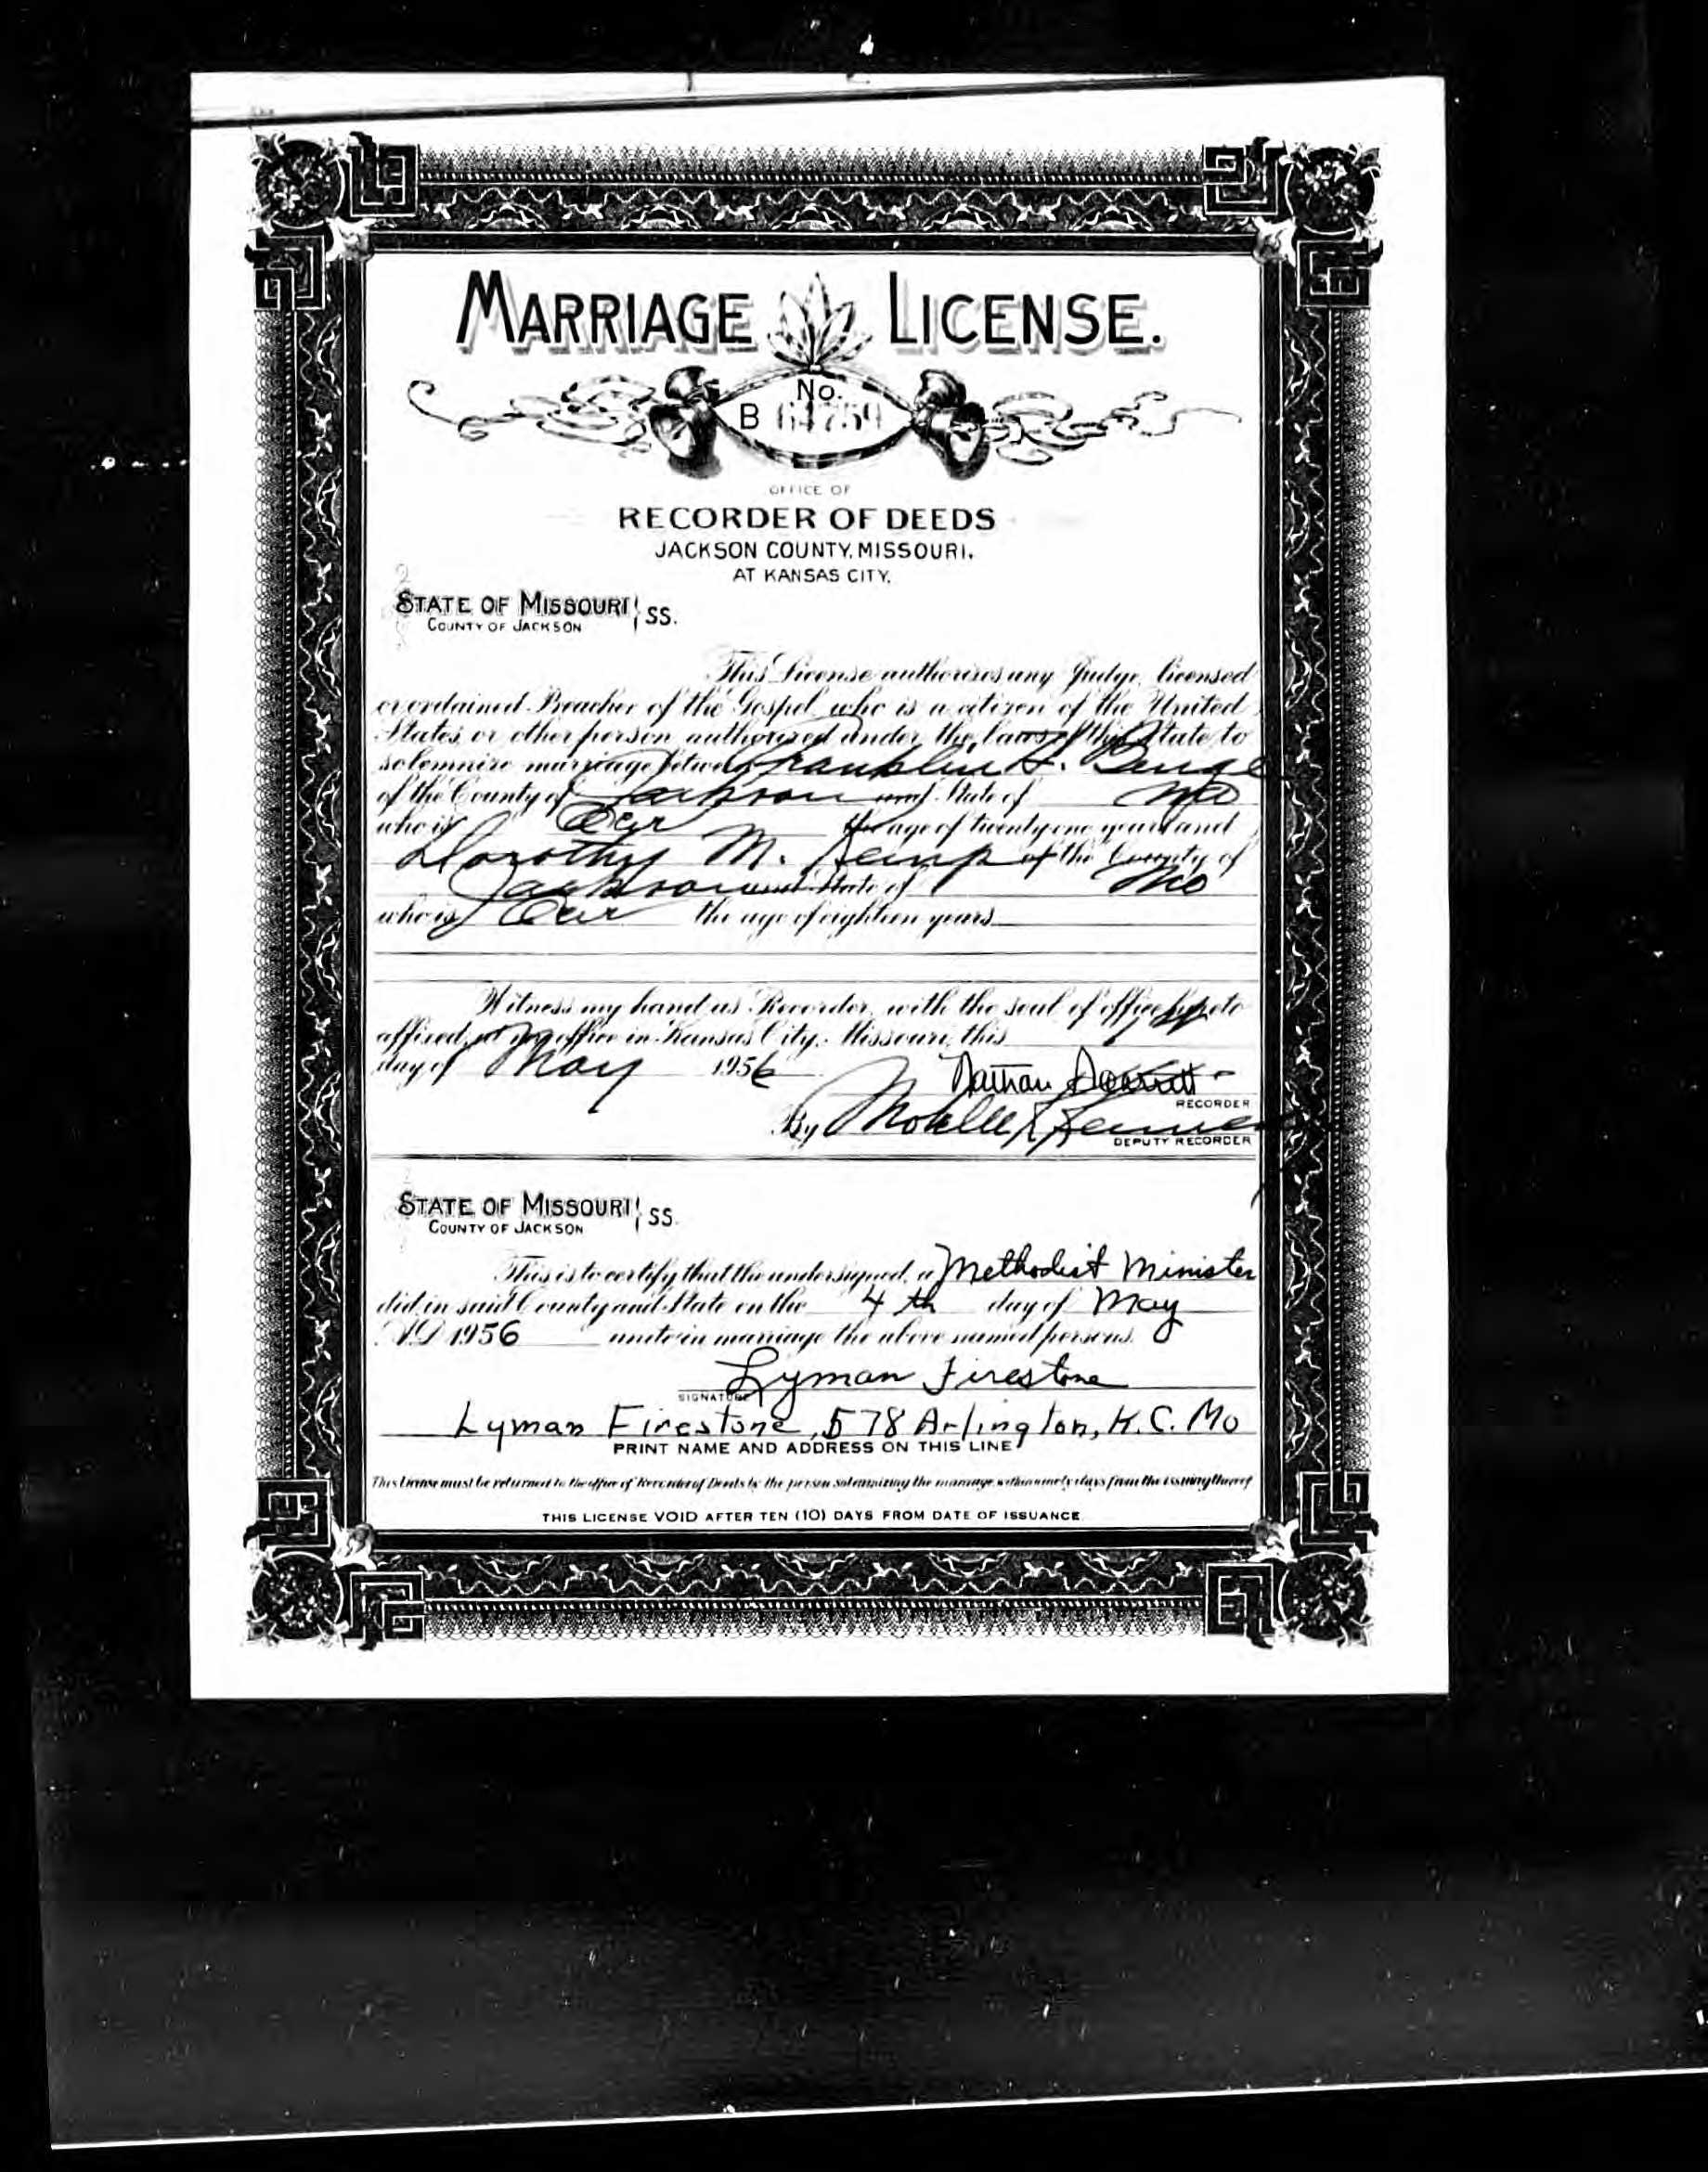 MARRIAGE LICENSE.
No.
B 64759
OFFICE OF
RECORDER OF DEEDS
JACKSON COUNTY, MISSOURI.
AT KANSAS CITY.
STATE OF MISSOURI } SS.
COUNTY OF JACKSON
This License authorizes any Judge, licensed
or ordained Preacher of the Gospel, who is a citizen of the United
States, or other person authorized under the laws of this State, to
solemnize marriage between Franklin
of the County of Jackson and State of Mo
who is Over the age of twenty one years and
Dorothy M. Kemp of the County of
Jackson and State of Mo
who is Over the age of eighteen years
Witness my hand as Recorder, with the seal of office hereto
affixed, at my office in Kansas City, Missouri, this 1st
day of May 1956
Nathan
RECORDER
By
DEPUTY RECORDER
STATE OF MISSOURI } SS.
COUNTY OF JACKSON
This is to certify that the undersigned, a Methodist Minister
did, in said County and State on the 4th day of May
A.D. 1956 unite in marriage the above named persons.
Lyman Firestone
SIGNATURE
Lyman Firestone, 578 Arlington, K.C. Mo
PRINT NAME AND ADDRESS ON THIS LINE
This License must be returned to the office of Recorder of Deeds by the person solemnizing the marriage within ninety days from the issuing thereof
THIS LICENSE VOID AFTER TEN (10) DAYS FROM DATE OF ISSUANCE